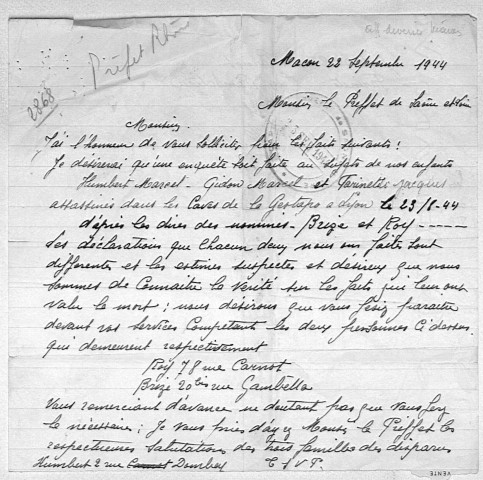 Préfet Rhône
2868
Macon 22 Septembre 1944
Monsieur le Préffet de Saône et Loire
Monsieur
J'ai l'honneur de vous solliciter pour les faits suivants :
Je désirerai qu'une enquête soit faite au sujets de nos enfants
Humbert Marcel - Gidon Marcel et Farinelles Jacques
assassinés dans les Caves de la Gestapo a Lyon le 23/8-44
d'après les dires des nommés - Brize et Roy -----
Les déclarations que chacun deux nous ons faites sont
differentes et les estimes suspectes et désireux que nous
sommes de Connaitre la Verité sur les faits qui leur ont
valu la mort ; nous désirons que vous fésiez paraître
devant vos services Compétent les deux personnes Ci dessous
qui demeurent respectivement
Roy 78 rue Carnot
Brize 20 bis rue Gambetta
Vous remerciant d'avance ne doutant pas que vous ferez
le nécessaire ; Je vous prie d'agréer Monsieur le Préffet les
respectueuses salutations des trois familles des disparus
Humbert 2 rue Carnot Dombey T S V P.
VENTE